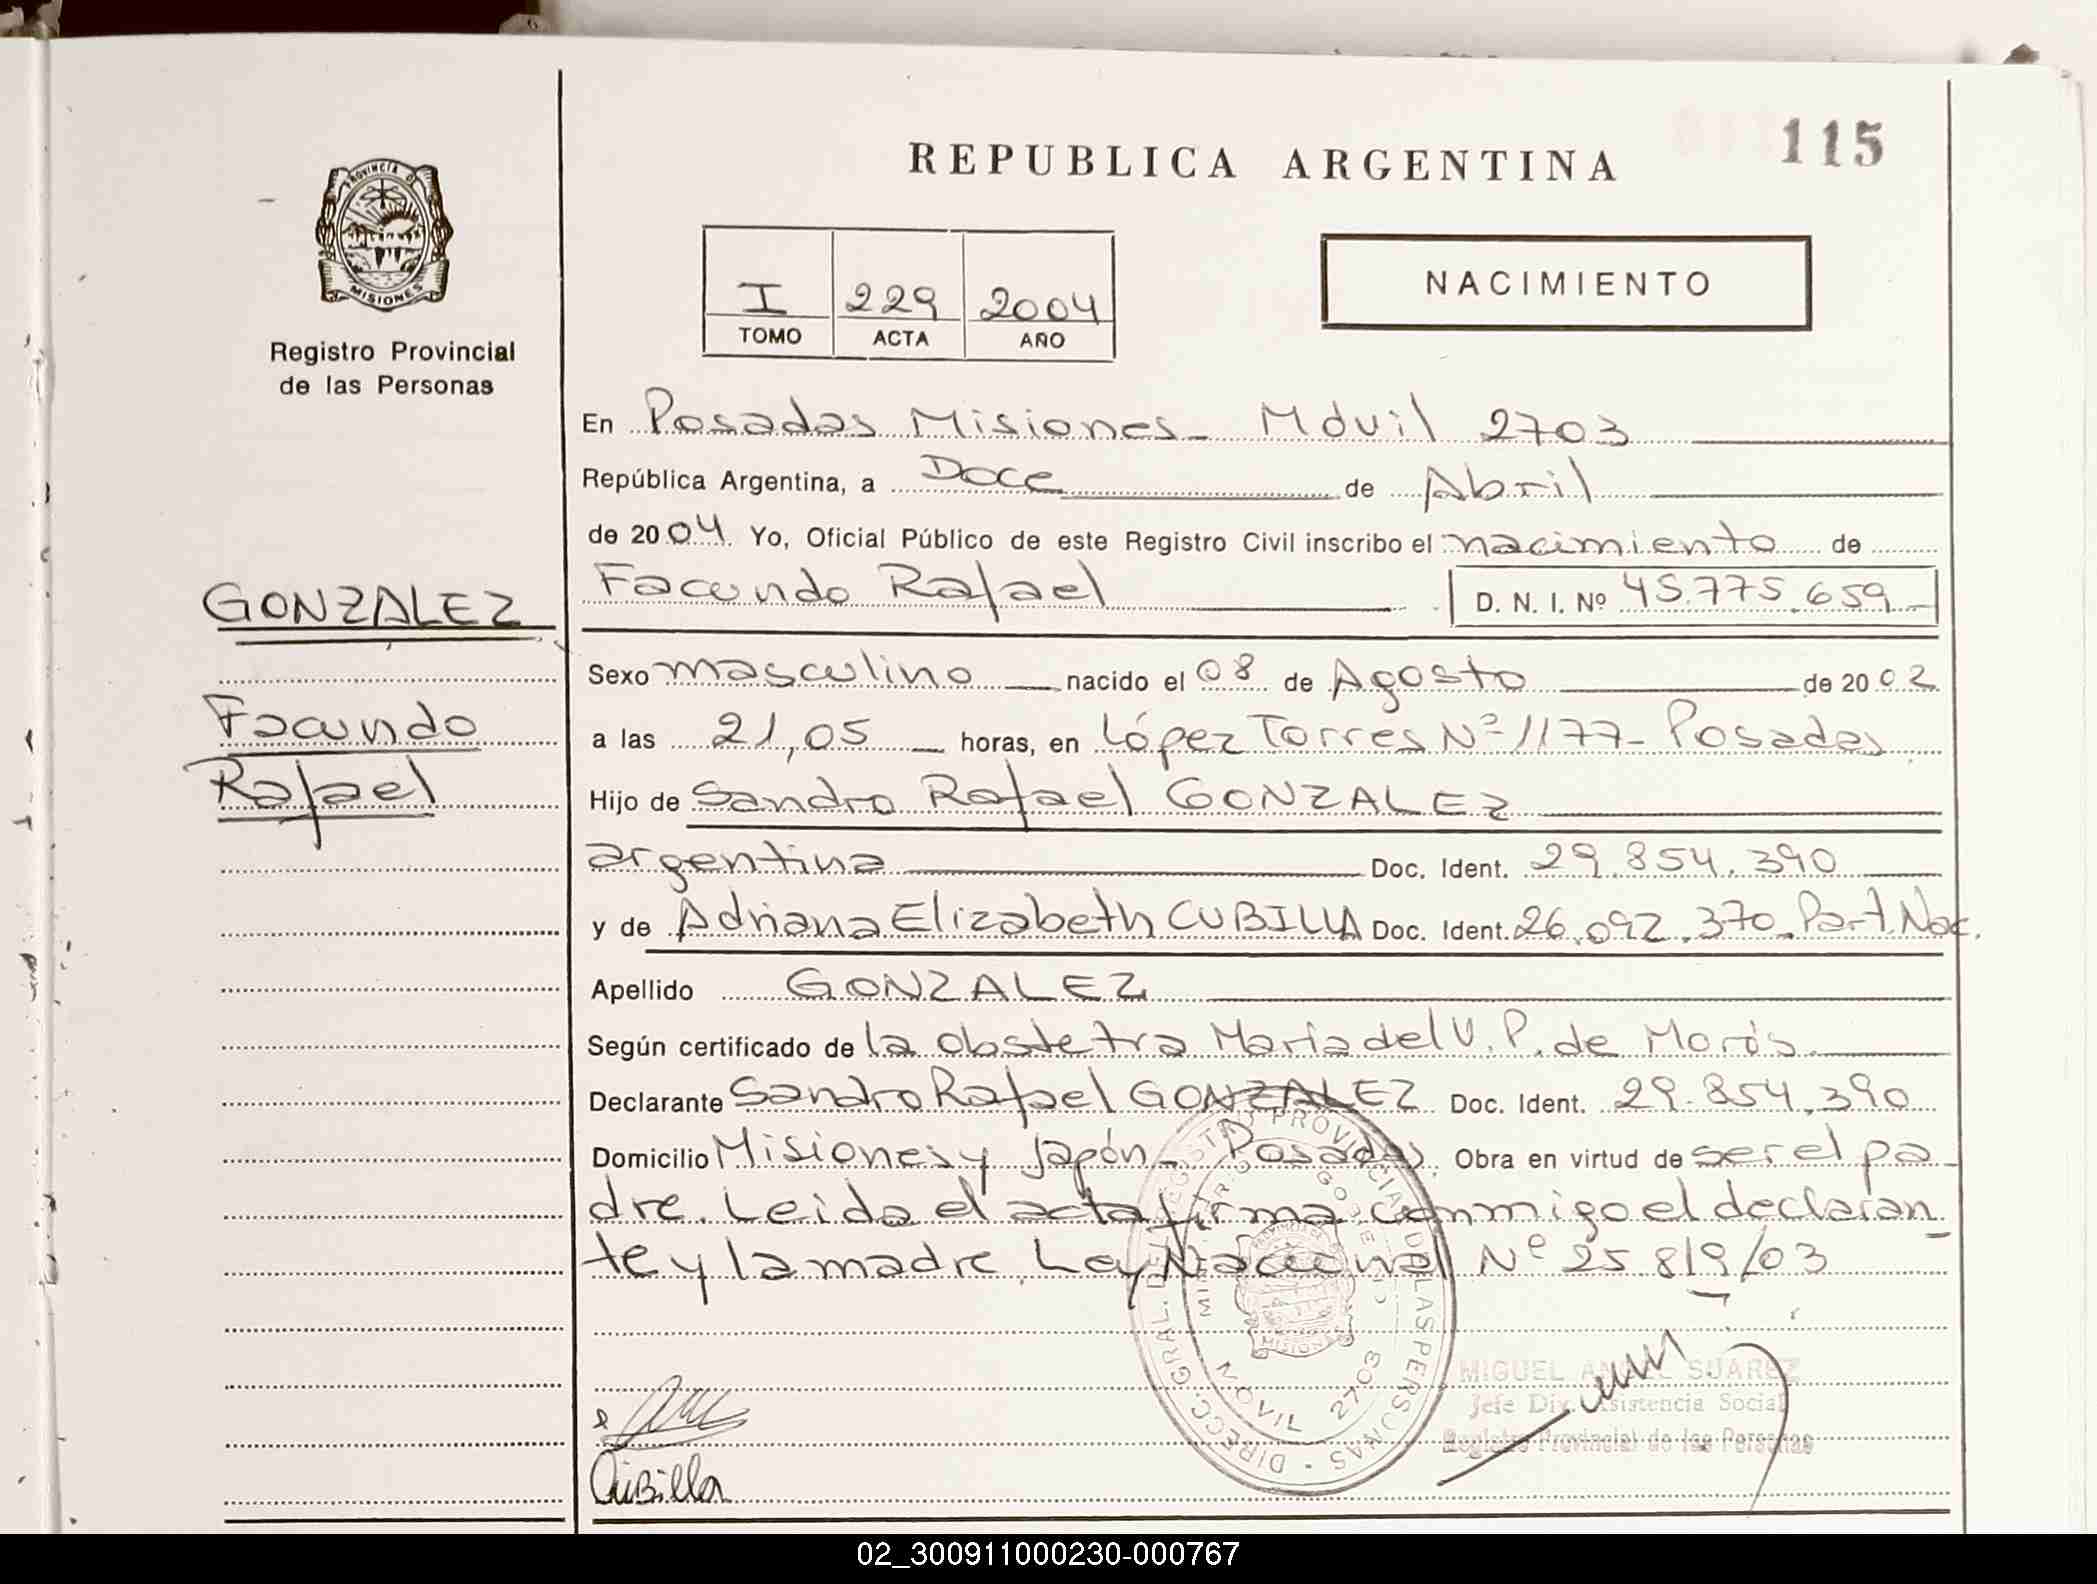 115
REPUBLICA ARGENTINA
PROVINCIA DE
MISIONES
NACIMIENTO
I 229 2004
TOMO ACTA AÑO
Registro Provincial
de las Personas
En Posadas Misiones - Móvil 2703
República Argentina, a Doce de Abril
de 2004 Yo, Oficial Público de este Registro Civil inscribo el nacimiento de
GONZALEZ
Facundo Rafael D. N. I. Nº 45.775.659
Sexo masculino nacido el 08 de Agosto de 2002
Facundo
a las 21,05 horas, en López Torres Nº 1177 - Posadas
Rafael
Hijo de Sandro Rafael GONZALEZ
argentina Doc. Ident. 29.854.390
y de Adriana Elizabeth CUBILLA Doc. Ident. 26.092.370 - Part. Nac.
Apellido GONZALEZ
Según certificado de la obstetra María del V. P. de
Declarante Sandro Rafael GONZALEZ Doc. Ident. 29.854.390
Domicilio Misiones y Japón - Posadas. Obra en virtud de ser el pa
dre. Leida el acta firma conmigo el declaran
te y la madre. Ley Nacional Nº 25.819/03
DIRECC. GRAL. DEL REGISTRO PROVINCIAL DE LAS PERSONAS
MISIONES
MOVIL 2703
MIGUEL ANGEL SUAREZ
Jefe Div. Asistencia Social
Registro Provincial de las Personas
Cubilla
02_300911000230-000767